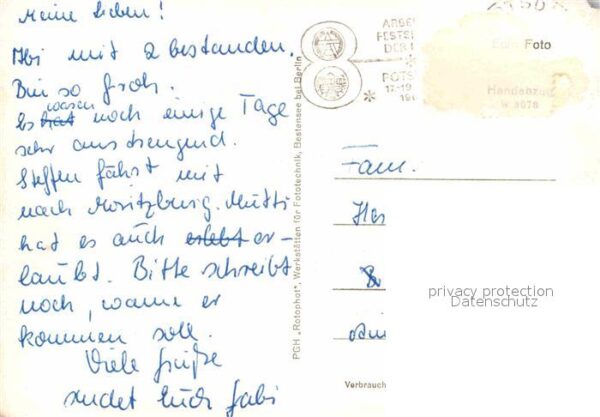 Meine Lieben!
Abi mit 2 bestanden.
Bin so froh.
waren
Es hat noch einige Tage
sehr anstrengend.
Steffen fährt mit
nach Moritzburg. Mutti
hat es auch erlebt er-
laubt. Bitte schreibt
noch, wann er
kommen soll.
Viele Grüße
sendet Euch Gabi
PGH „Rotophot", Werkstätten für Fototechnik, Bestensee bei Berlin
ARBE
FESTS
DER
POTS
17-19
Foto
Handabzug
Fam.
privacy protection
Datenschutz
Verbrauch